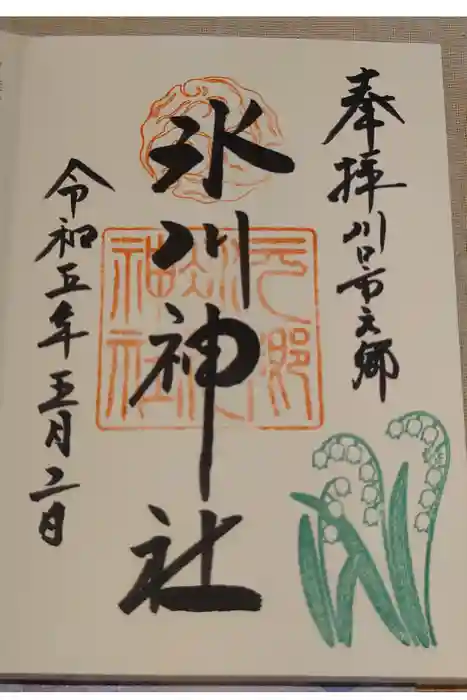 奉拝 川口市元郷
氷川神社
令和五年五月二日
元郷
氷川
神社